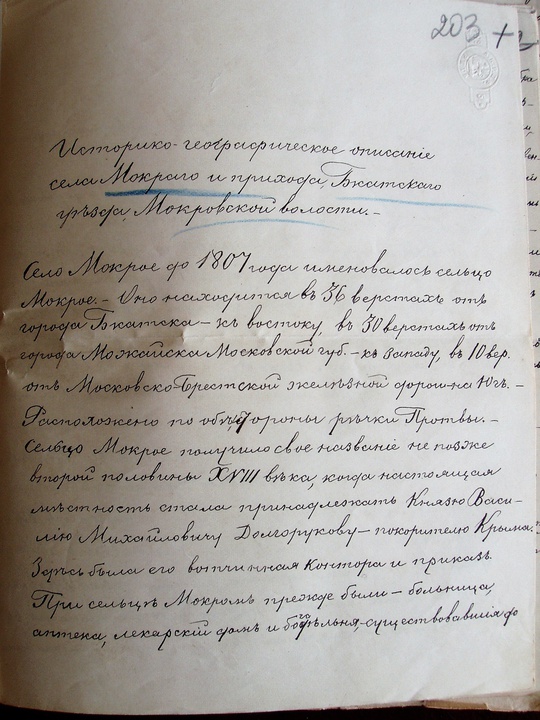 203 +
Историко-географическое описаніе
села Мокраго и прихода Гжатскаго
уѣзда, Мокровской волости. -
Село Мокрое до 1807 года именовалось сельцо
Мокрое. - Оно находится въ 36 верстахъ отъ
города Гжатска - къ востоку, въ 30 верстахъ отъ
города Можайска Московской губ. - къ западу, въ 10 вер.
отъ Московско-Брестской желѣзной дороги на югъ. -
Расположено по обѣ стороны рѣчки Протвы. -
Сельцо Мокрое получило свое названіе не позже
второй половины XVIII вѣка, когда настоящая
мѣстность стала принадлежать Князю Васи-
лію Михайловичу Долгорукову - покорителю Крыма.
Здѣсь была его вотчинная контора и приказъ.
При сельцѣ Мокромъ прежде были - больница,
аптека, лекарскій домъ и богодѣльня, существовавшія до